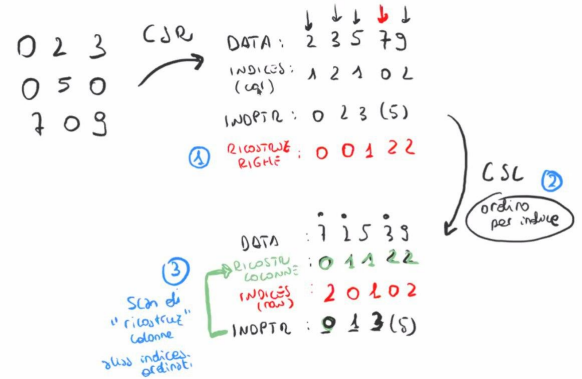 0 2 3
0 5 0
7 0 9
CSR
DATA : 2 3 5 7 9
INDICES : 1 2 1 0 2
(col)
INDPTR : 0 2 3 (5)
1 RICOSTRUZ : 0 0 1 2 2
RIGHE
CSC 2
ordino
per indice
DATA : 7 2 5 3 9
RICOSTR : 0 1 1 2 2
COLONNE
INDICES : 2 0 1 0 2
(row)
INDPTR : 0 1 3 (5)
3
Scan di
"ricostruz"
colonne
indices
ordinati